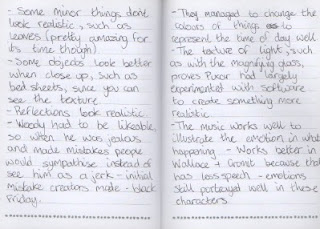 - Some minor things don't
look realistic, such as
leaves (pretty amazing for
its time though)
- Some objects look better
when close up, such as
bed sheets, since you can
see the texture
- Reflections look realistic.
- Woody had to be likeable
so when he was jealous
and made mistakes people
would sympathise instead of
see him as a jerk - initial
mistake creators made - black
Friday.
- They managed to change the
colours of things to
represent the time of day well
- The texture of light, such
as with the magnifying glass,
proves Pixar had largely
experimented with software
to create something more
realistic
- The music works well to
illustrate the emotion in what
happening - Works better in
Wallace + Gromit because that
has less speech - emotions
still portrayed well in these
characters.